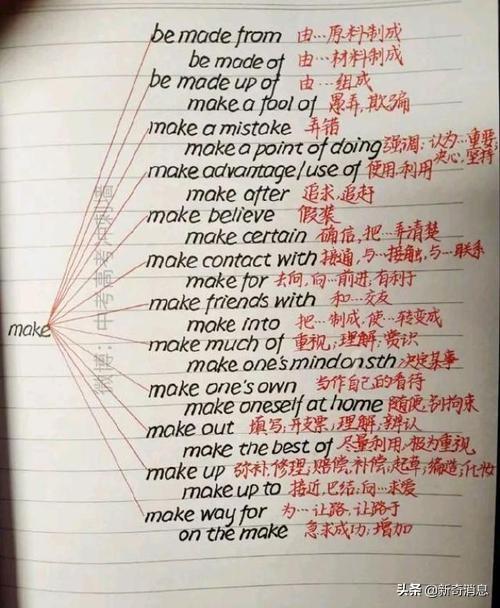 be made from 由…原料制成
be made of 由…材料制成
be made up of 由…组成
make a fool of 愚弄,欺骗
make a mistake 弄错
make a point of doing 强调;认为…重要;决心,坚持
make advantage/use of 使用,利用
make after 追求,追赶
make believe 假装
make certain 确信,把…弄清楚
make contact with 接通,与…接触,与…联系
make for 去向,向…前进,有利于
make friends with 和…交友
make
make into 把…制成,使…转变成
make much of 重视,理解,赏识
make one's mind on sth 决定某事
make one's own 当作自己的看待
make oneself at home 随便,别拘束
make out 填写;开支票;理解;辨认
make the best of 尽量利用,极为重视
make up 弥补;修理;赔偿,补偿;起草;编造;化妆
make up to 接近,巴结;向…求爱
make way for 为…让路,让路于
on the make 急求成功;增加
微博:中考高考
头条 @新奇消息